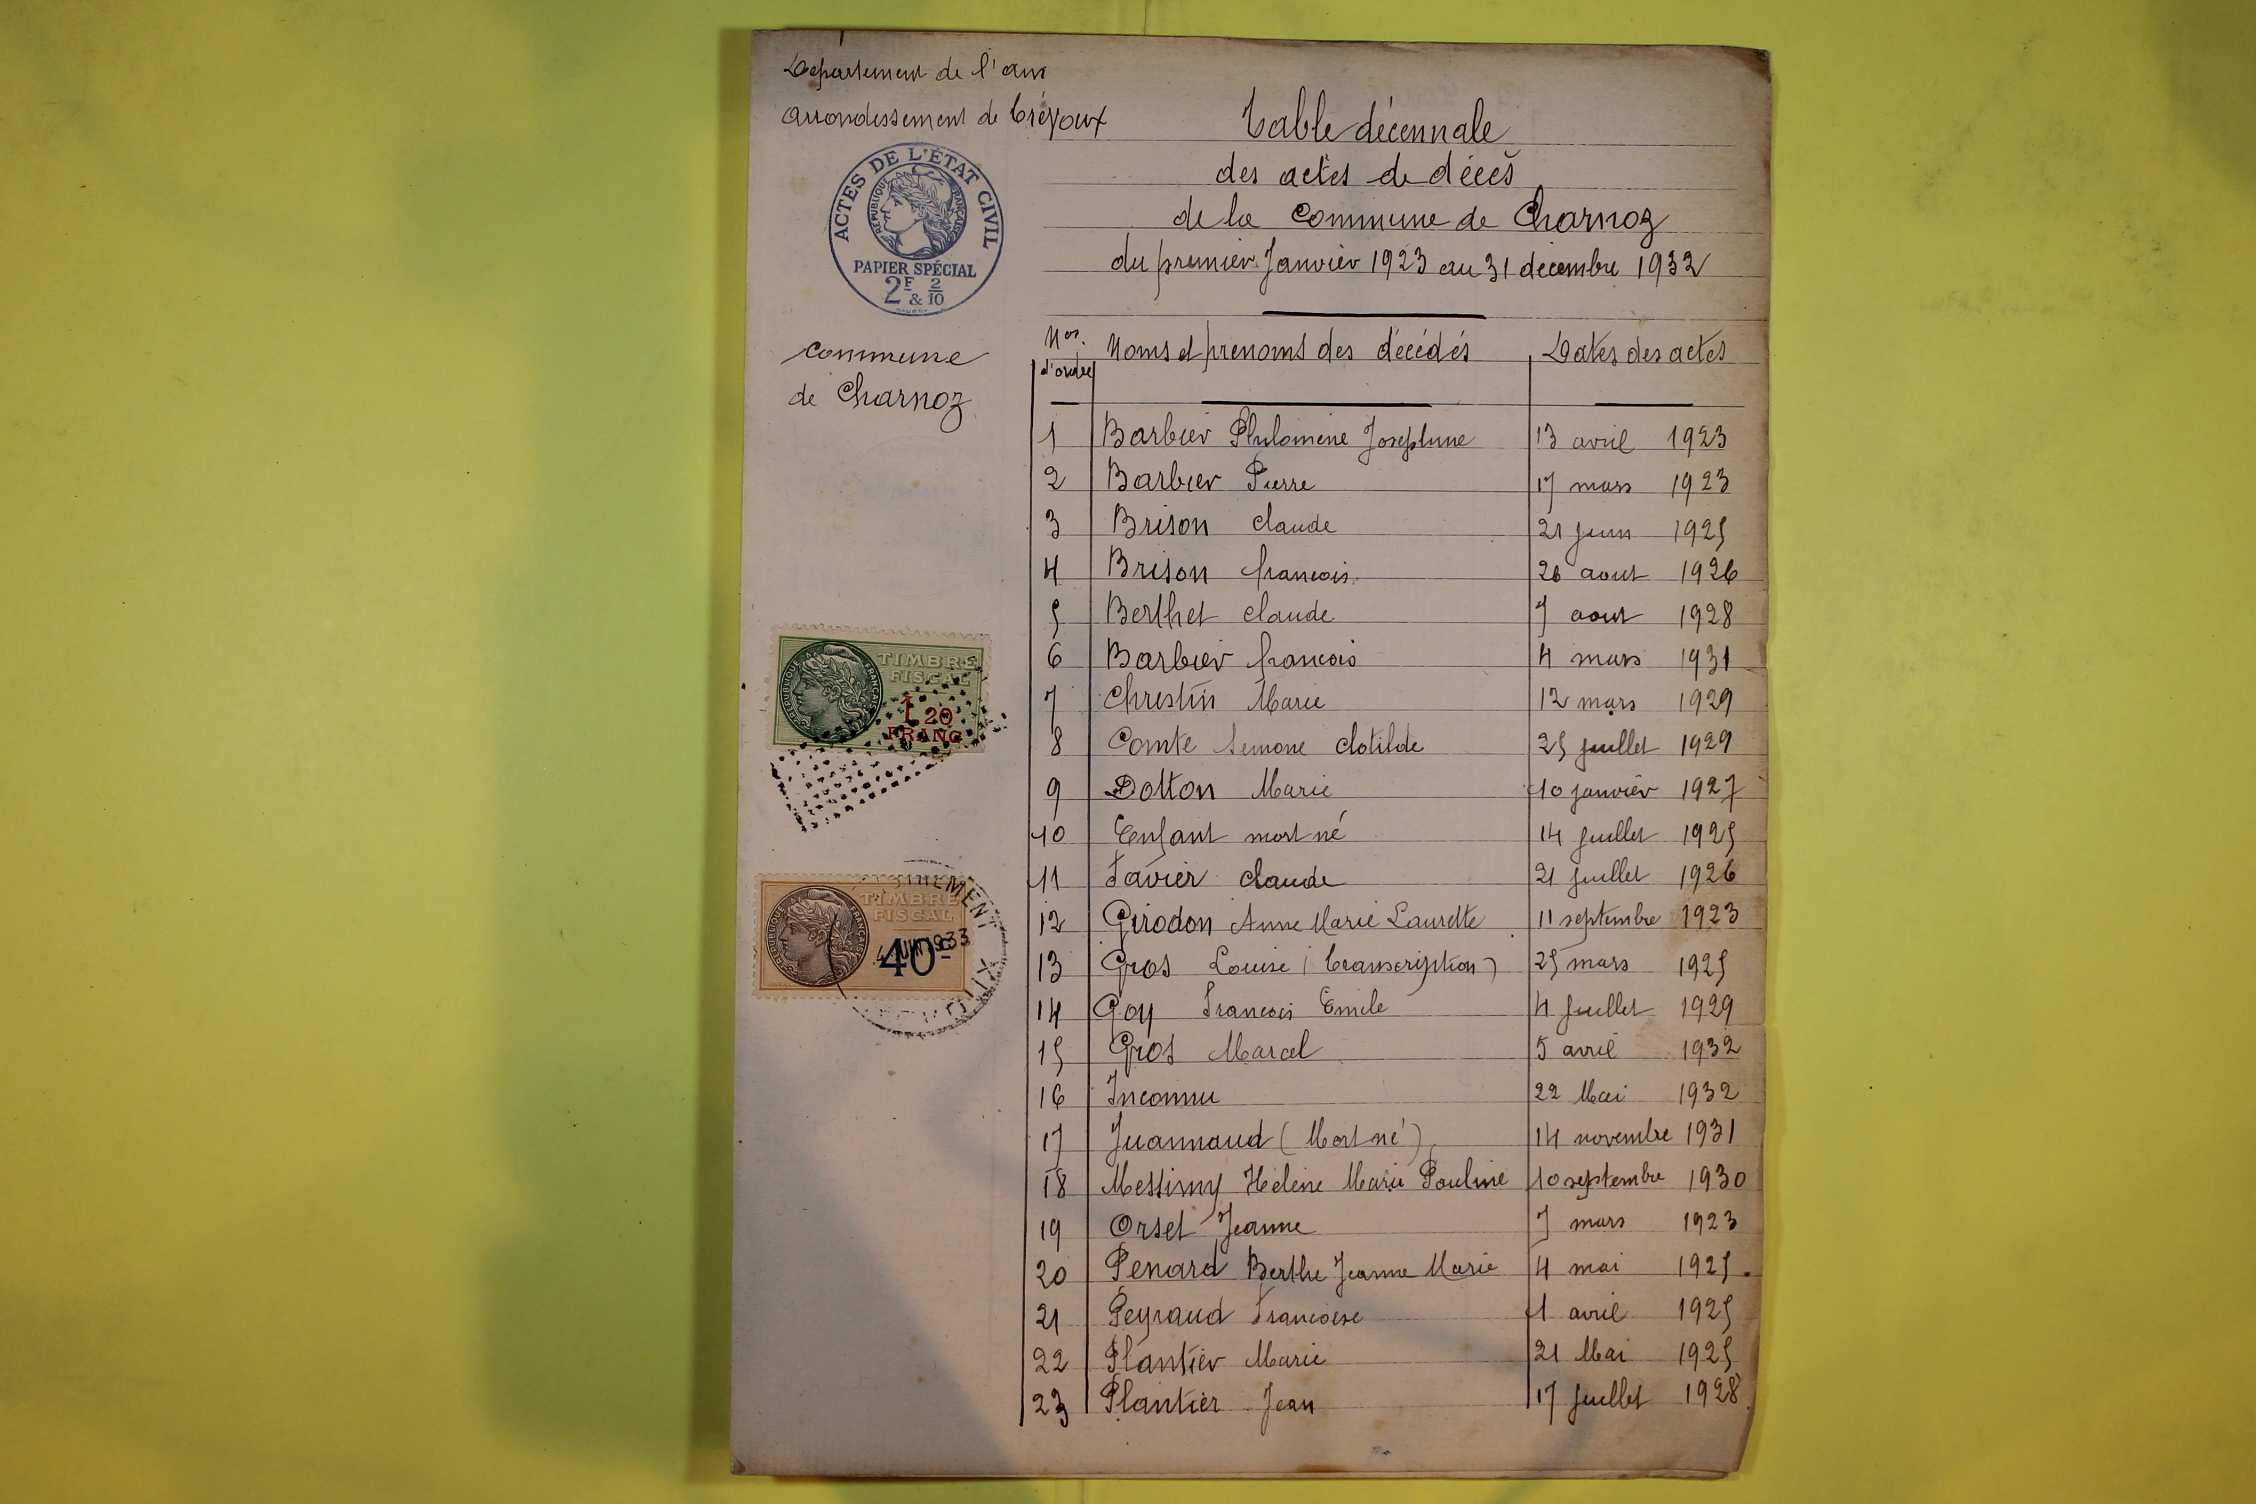 Département de l'ain
arrondissement de Trévoux
Table décennale
des actes de décès
de la Commune de Charnoz
du premier Janvier 1923 au 31 décembre 1932
ACTES DE L'ÉTAT CIVIL
RÉPUBLIQUE FRANÇAISE
PAPIER SPÉCIAL
2F & 2/10
commune
de Charnoz
Nos. d'ordre Noms et prenoms des décédés Dates des actes
1 Barbier Philomène Josephine 13 avril 1923
2 Barbier Pierre 17 mars 1923
3 Brison claude 21 juin 1925
4 Brison francois 26 aout 1926
5 Berthet claude 7 aout 1928
6 Barbier francois 4 mars 1931
7 Chrestin Marie 12 mars 1929
8 Comte Simone Clotilde 25 juillet 1929
9 Dotton Marie 10 janvier 1927
10 Enfant mort né 14 juillet 1925
11 Favier claude 21 juillet 1926
12 Girodon Anne Marie Laurette 11 septembre 1923
13 Gros Louise (transcription) 25 mars 1925
14 Goy Francois Emile 4 juillet 1929
15 Gros Marcel 5 avril 1932
16 Inconnu 22 Mai 1932
17 Juannaud (Mort né) 14 novembre 1931
18 Messimy Hélène Marie Pauline 10 septembre 1930
19 Orset Jeanne 7 mars 1923
20 Penard Berthe Jeanne Marie 4 mai 1925.
21 Peyraud Francoise 1 avril 1925
22 Plantier Marie 21 Mai 1925
23 Plantier Jean 17 juillet 1928
TIMBRE
FISCAL
RÉPUBLIQUE FRANÇAISE
1.20
FRANC
TIMBRE
FISCAL
RÉPUBLIQUE FRANÇAISE
40c
1933